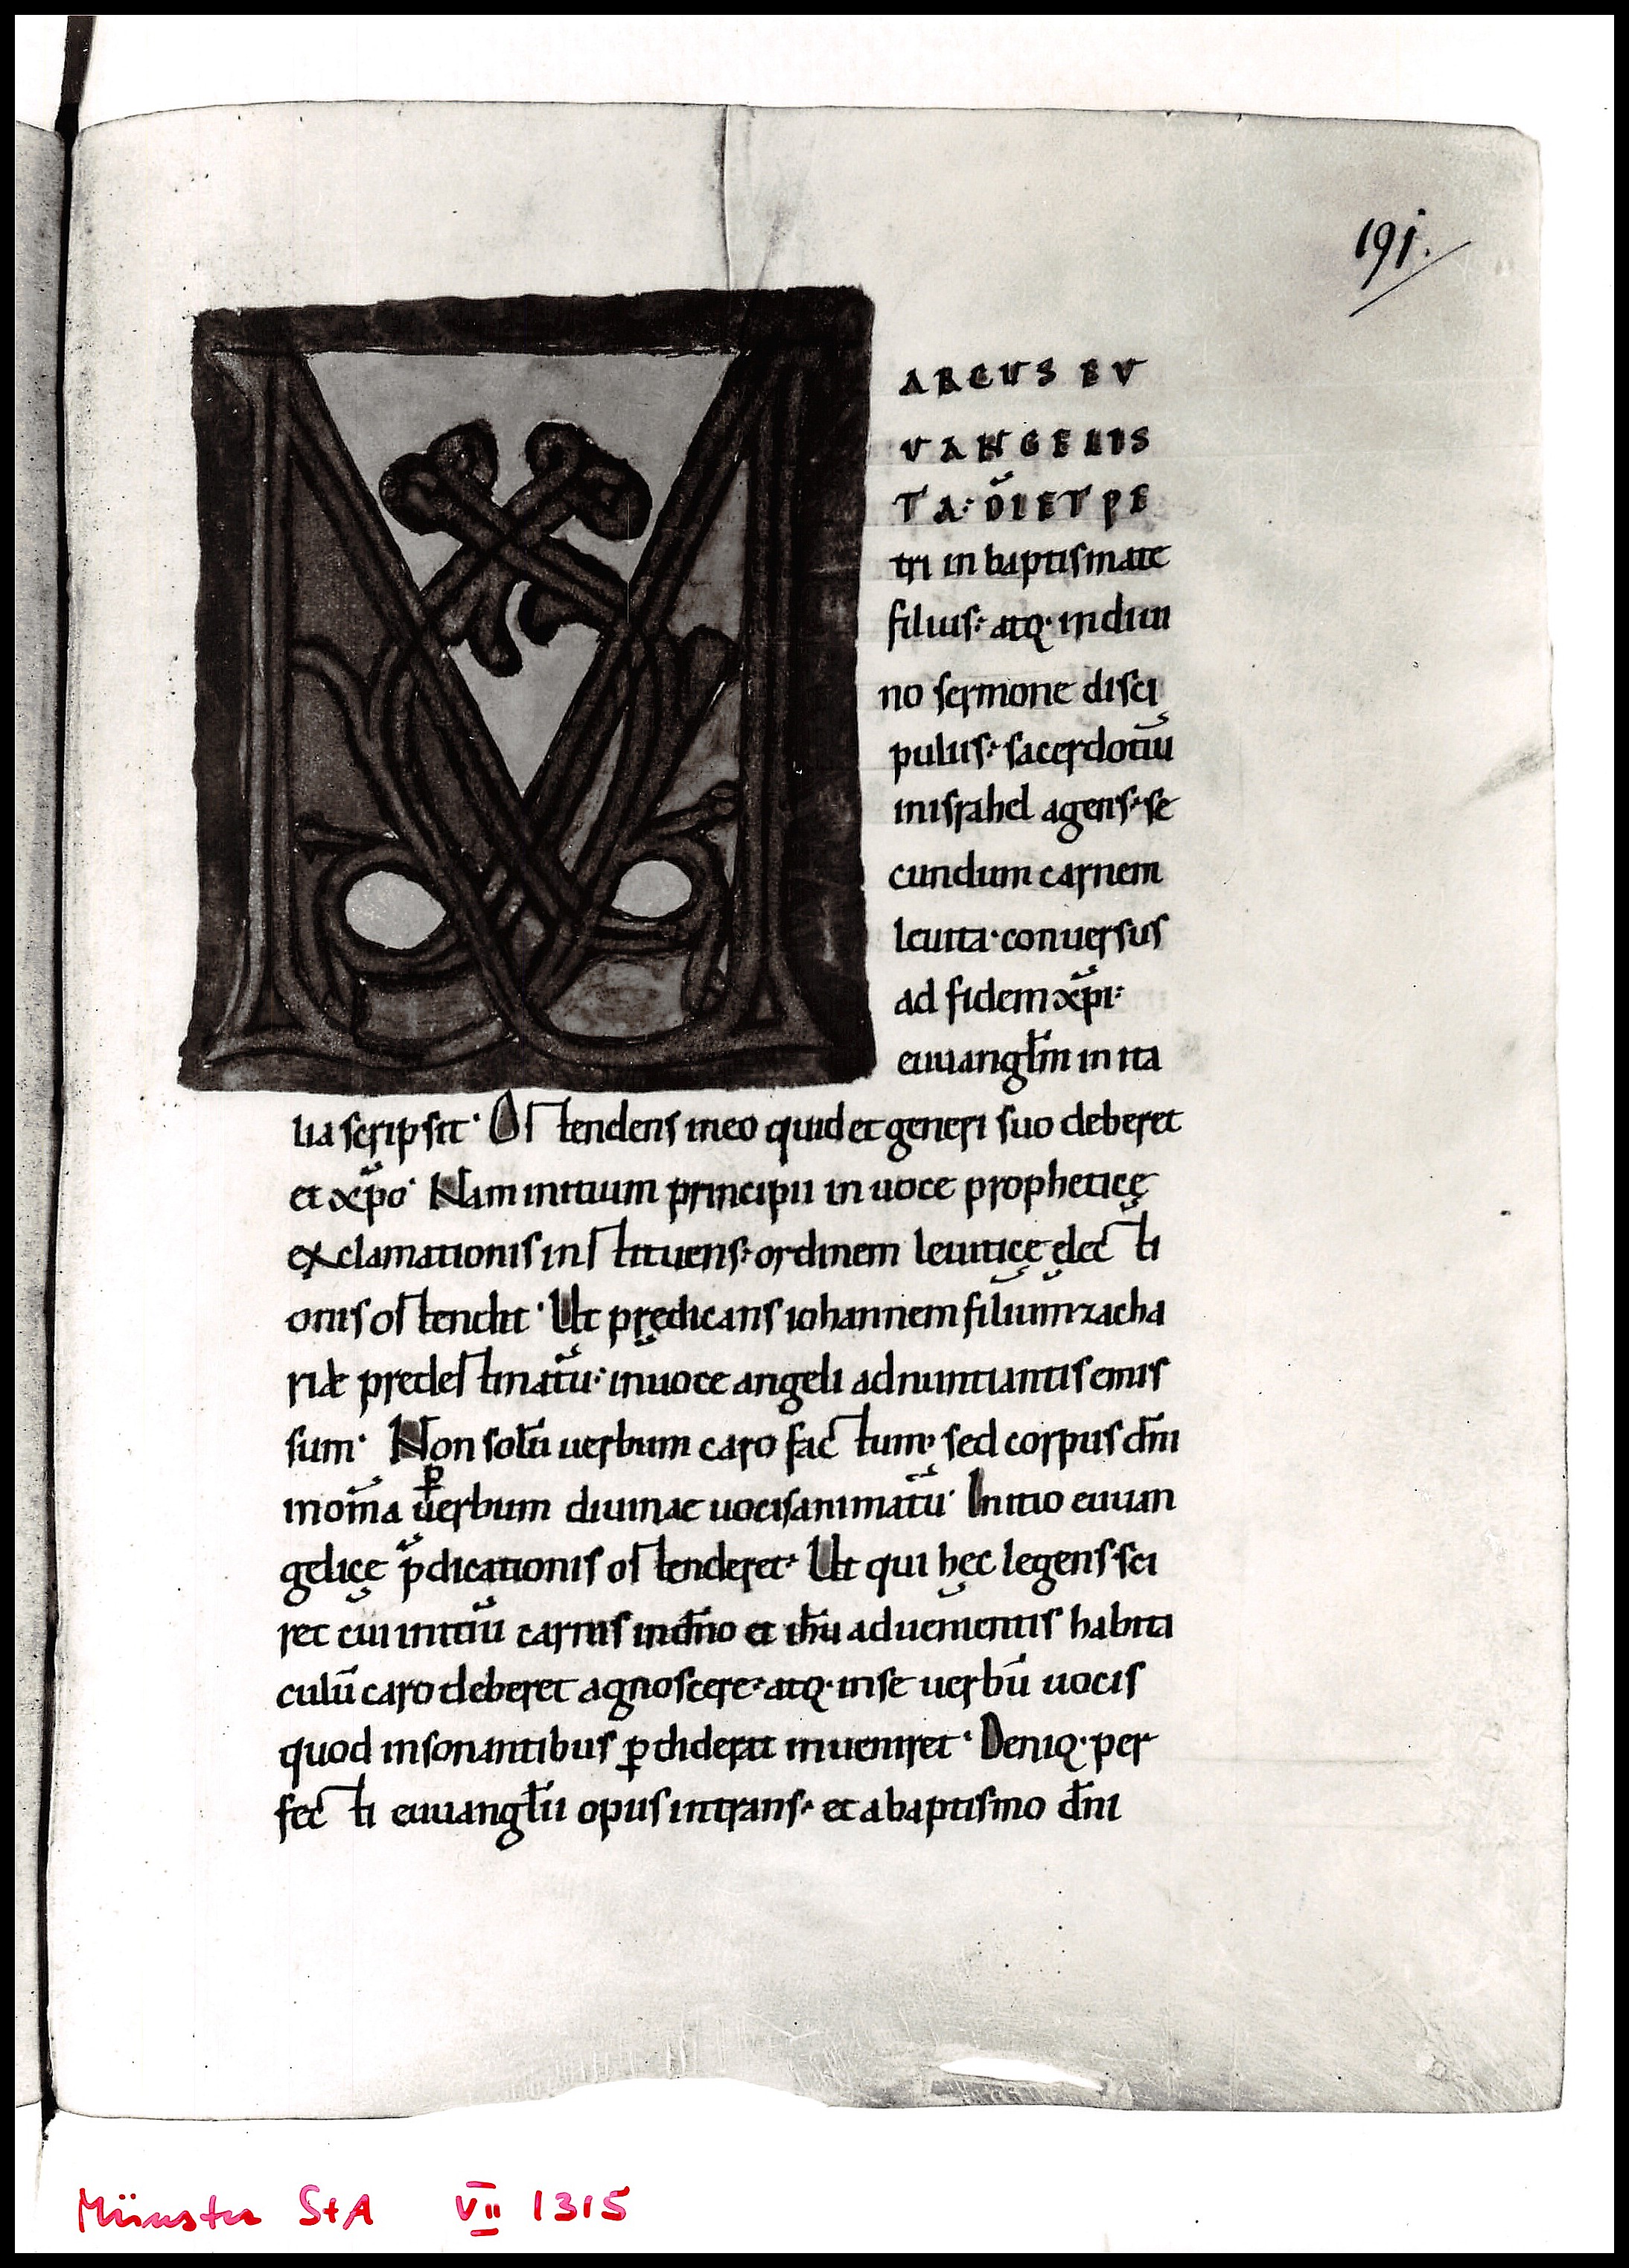 191.
MARCUS EU
UANGELIS
TA· DI ET PE
tri in baptismate
filius· atq· in diui
no sermone disci
pulus· sacerdotiū
in israhel agens· se
cundum carnem
leuita· conuersus
ad fidem xp̄i·
euuangl̄m in ita
lia scripsit· Ostendens in eo quid et generi suo deberet
et xp̄o· Nam initium principii in uoce propheticę
exclamationis instituens· ordinem leuiticę electi
onis ostendit· Ut prędicans iohannem filium zacha
riæ predestinatū· in uoce angeli adnuntiantis emis
sum· Non solū uerbum caro factum· sed corpus dn̄i
in om̄a p̱ uerbum diuinae uocis animatū· Initio euuan
gelicę p̄dicationis ostenderet· Ut qui hęc legens sci
ret cui initiū carnis in dn̄o et ih̄u aduenientis habita
culū caro deberet agnoscere· atq· in se uerbū uocis
quod in sonantibus ꝑdiderat inueniret· Deniq· per
fecti euuangl̄ii opus intrans· et a baptismo dn̄i
Münster StA VII 1315